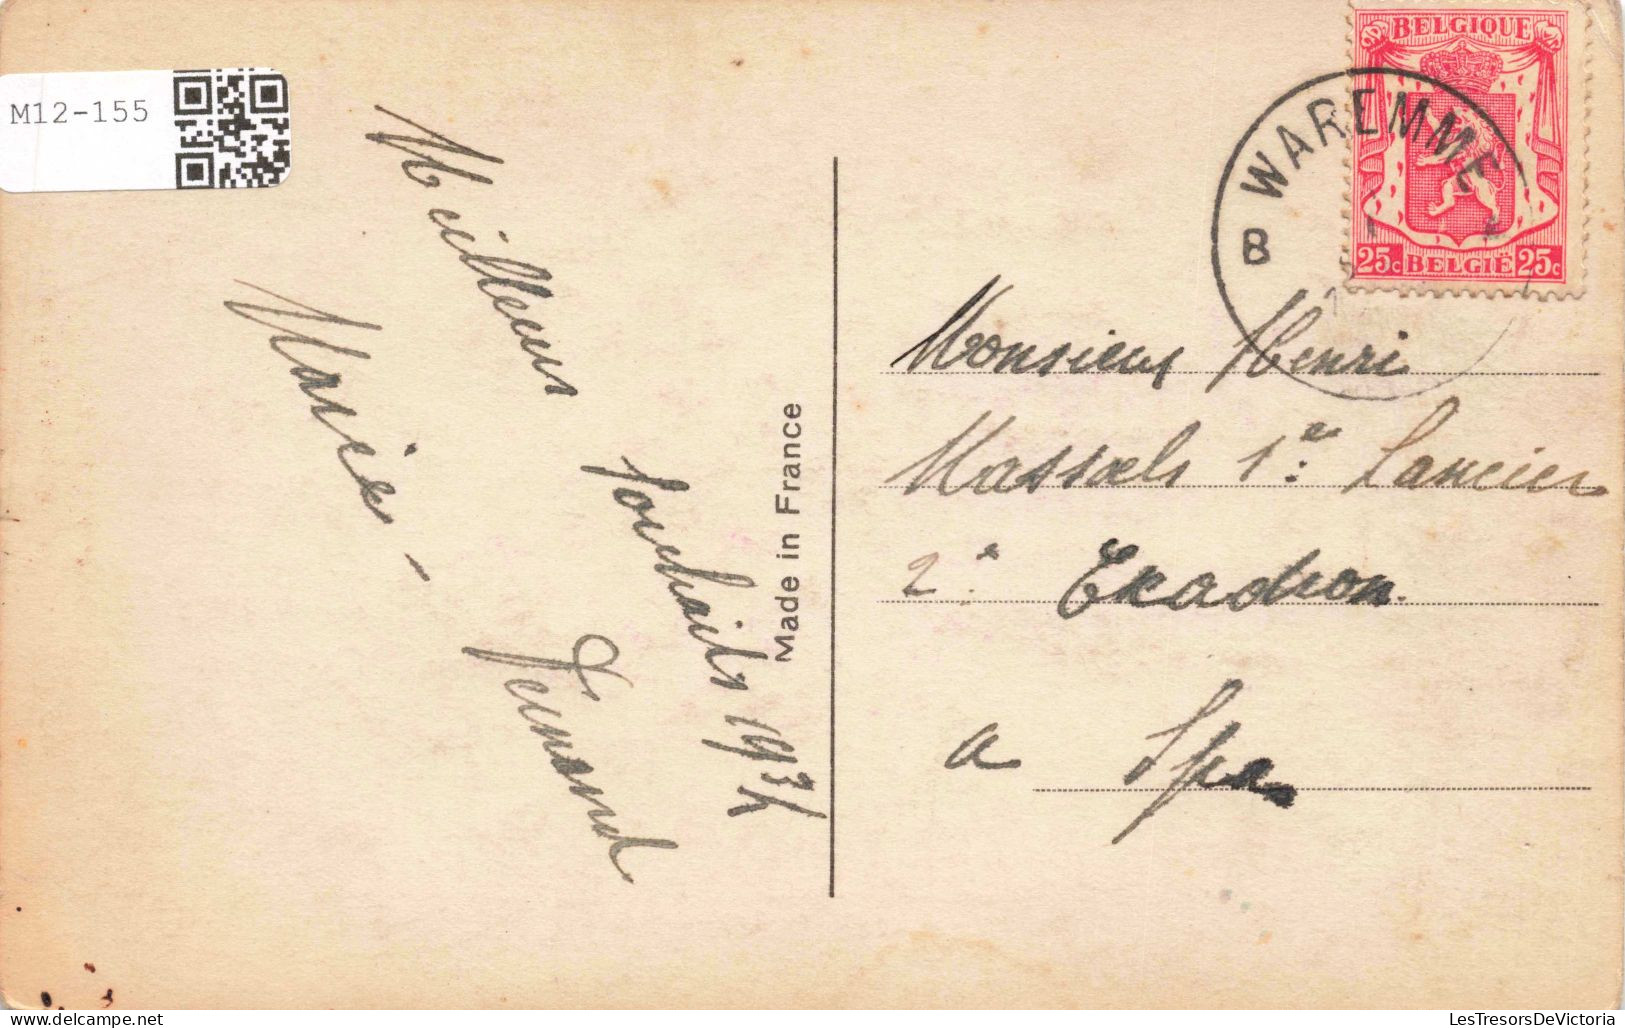 M12-155
Meilleurs souhaits 1937
Marie - Fernand
Made in France
BELGIQUE
25c BELGIË 25c
B WAREMME
Monsieur Henri
Massaels 1er Lancier
2e Ecadron
a Spa
LesTresorsDeVictoria